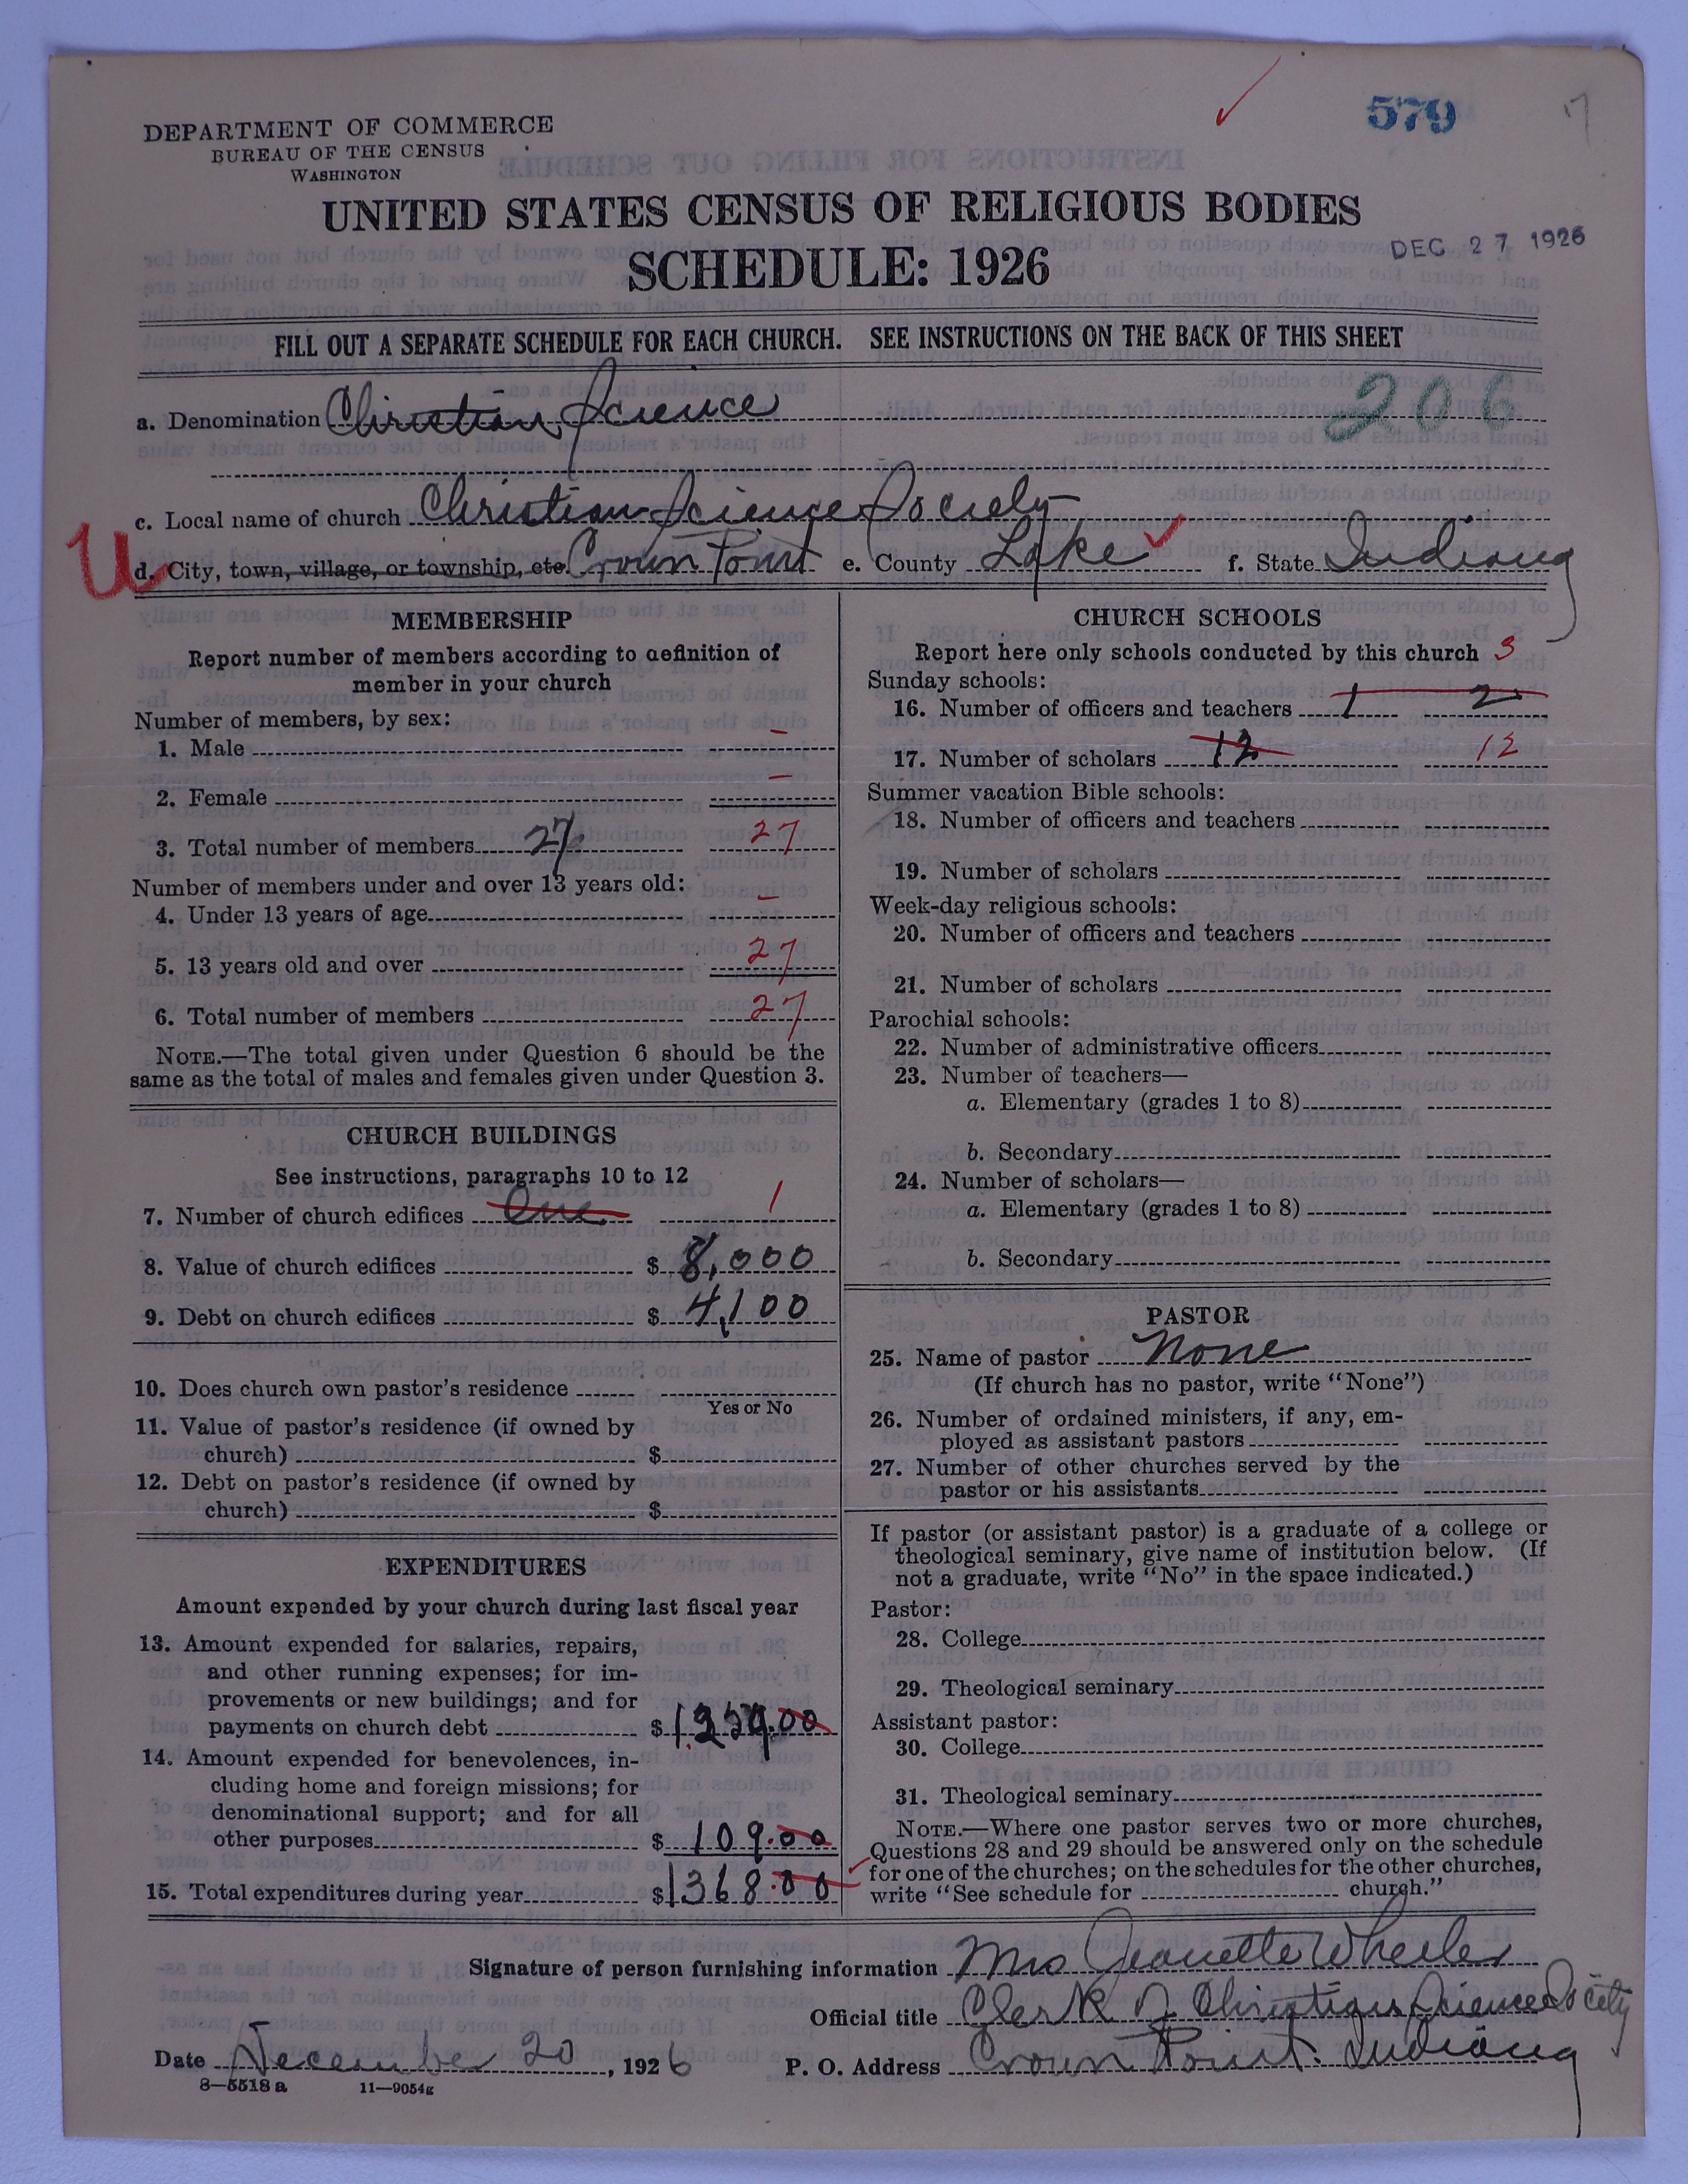 579
17
DEPARTMENT OF COMMERCE
BUREAU OF THE CENSUS
WASHINGTON
UNITED STATES CENSUS OF RELIGIOUS BODIES
SCHEDULE: 1926
DEC 27 1926
FILL OUT A SEPARATE SCHEDULE FOR EACH CHURCH. SEE INSTRUCTIONS ON THE BACK OF THIS SHEET
206
a. Denomination Christian Science
c. Local name of church Christian Science Society
U
d. City, town, village, or township, etc. Crown Point e. County Lake f. State Indiana
MEMBERSHIP
Report number of members according to definition of
member in your church
Number of members, by sex:
1. Male -
2. Female -
3. Total number of members 27 27
Number of members under and over 13 years old:
4. Under 13 years of age -
5. 13 years old and over 27
6. Total number of members 27
NOTE.—The total given under Question 6 should be the
same as the total of males and females given under Question 3.
CHURCH BUILDINGS
See instructions, paragraphs 10 to 12
7. Number of church edifices One 1
8. Value of church edifices $ 8,000
9. Debt on church edifices $ 4,100
10. Does church own pastor's residence
Yes or No
11. Value of pastor's residence (if owned by
church) $
12. Debt on pastor's residence (if owned by
church) $
EXPENDITURES
Amount expended by your church during last fiscal year
13. Amount expended for salaries, repairs,
and other running expenses; for im-
provements or new buildings; and for
payments on church debt $ 1,259.00
14. Amount expended for benevolences, in-
cluding home and foreign missions; for
denominational support; and for all
other purposes $ 109.00
15. Total expenditures during year $ 1368.00
CHURCH SCHOOLS
Report here only schools conducted by this church 3
Sunday schools:
16. Number of officers and teachers 1 2
17. Number of scholars 12 12
Summer vacation Bible schools:
18. Number of officers and teachers
19. Number of scholars
Week-day religious schools:
20. Number of officers and teachers
21. Number of scholars
Parochial schools:
22. Number of administrative officers
23. Number of teachers—
a. Elementary (grades 1 to 8)
b. Secondary
24. Number of scholars—
a. Elementary (grades 1 to 8)
b. Secondary
PASTOR
25. Name of pastor None
(If church has no pastor, write "None")
26. Number of ordained ministers, if any, em-
ployed as assistant pastors
27. Number of other churches served by the
pastor or his assistants
If pastor (or assistant pastor) is a graduate of a college or
theological seminary, give name of institution below. (If
not a graduate, write "No" in the space indicated.)
Pastor:
28. College
29. Theological seminary
Assistant pastor:
30. College
31. Theological seminary
NOTE.—Where one pastor serves two or more churches,
Questions 28 and 29 should be answered only on the schedule
for one of the churches; on the schedules for the other churches,
write "See schedule for church."
Signature of person furnishing information Mrs Jeanette Wheeler
Official title Clerk of Christian Science Society
Date December 20, 1926 P. O. Address Crown Point. Indiana
8—5518 a 11—9054g